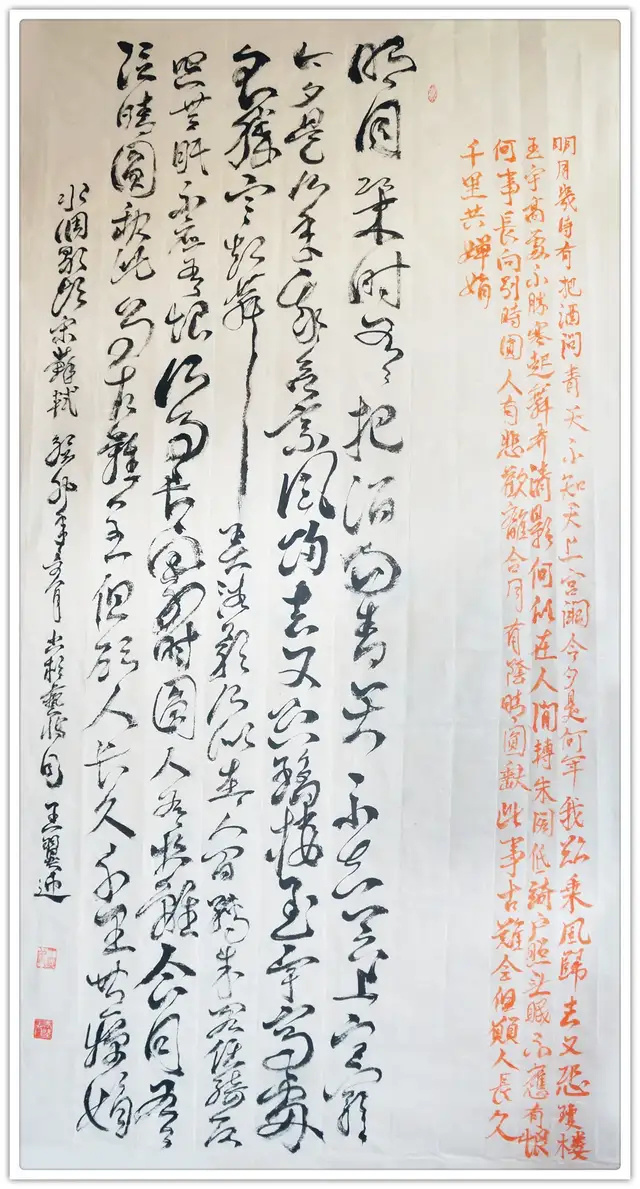 明月幾時有把酒問青天不知天上宮闕今夕是何年我欲乘風歸去又恐瓊樓
玉宇高處不勝寒起舞弄清影何似在人間轉朱閣低綺戶照無眠不應有恨
何事長向別時圓人有悲歡離合月有陰晴圓缺此事古難全但願人長久
千里共嬋娟
明月幾時有把酒問青天不知天上宮闕
今夕是何年我欲乘風歸去又恐瓊樓玉宇高處
不勝寒起舞弄清影何似在人間轉朱閣低綺戶
照無眠不應有恨何事長向別時圓人有悲歡離合月有
陰晴圓缺此事古難全但願人長久千里共嬋娟
水調歌頭宋蘇軾 癸卯年 月 王翼